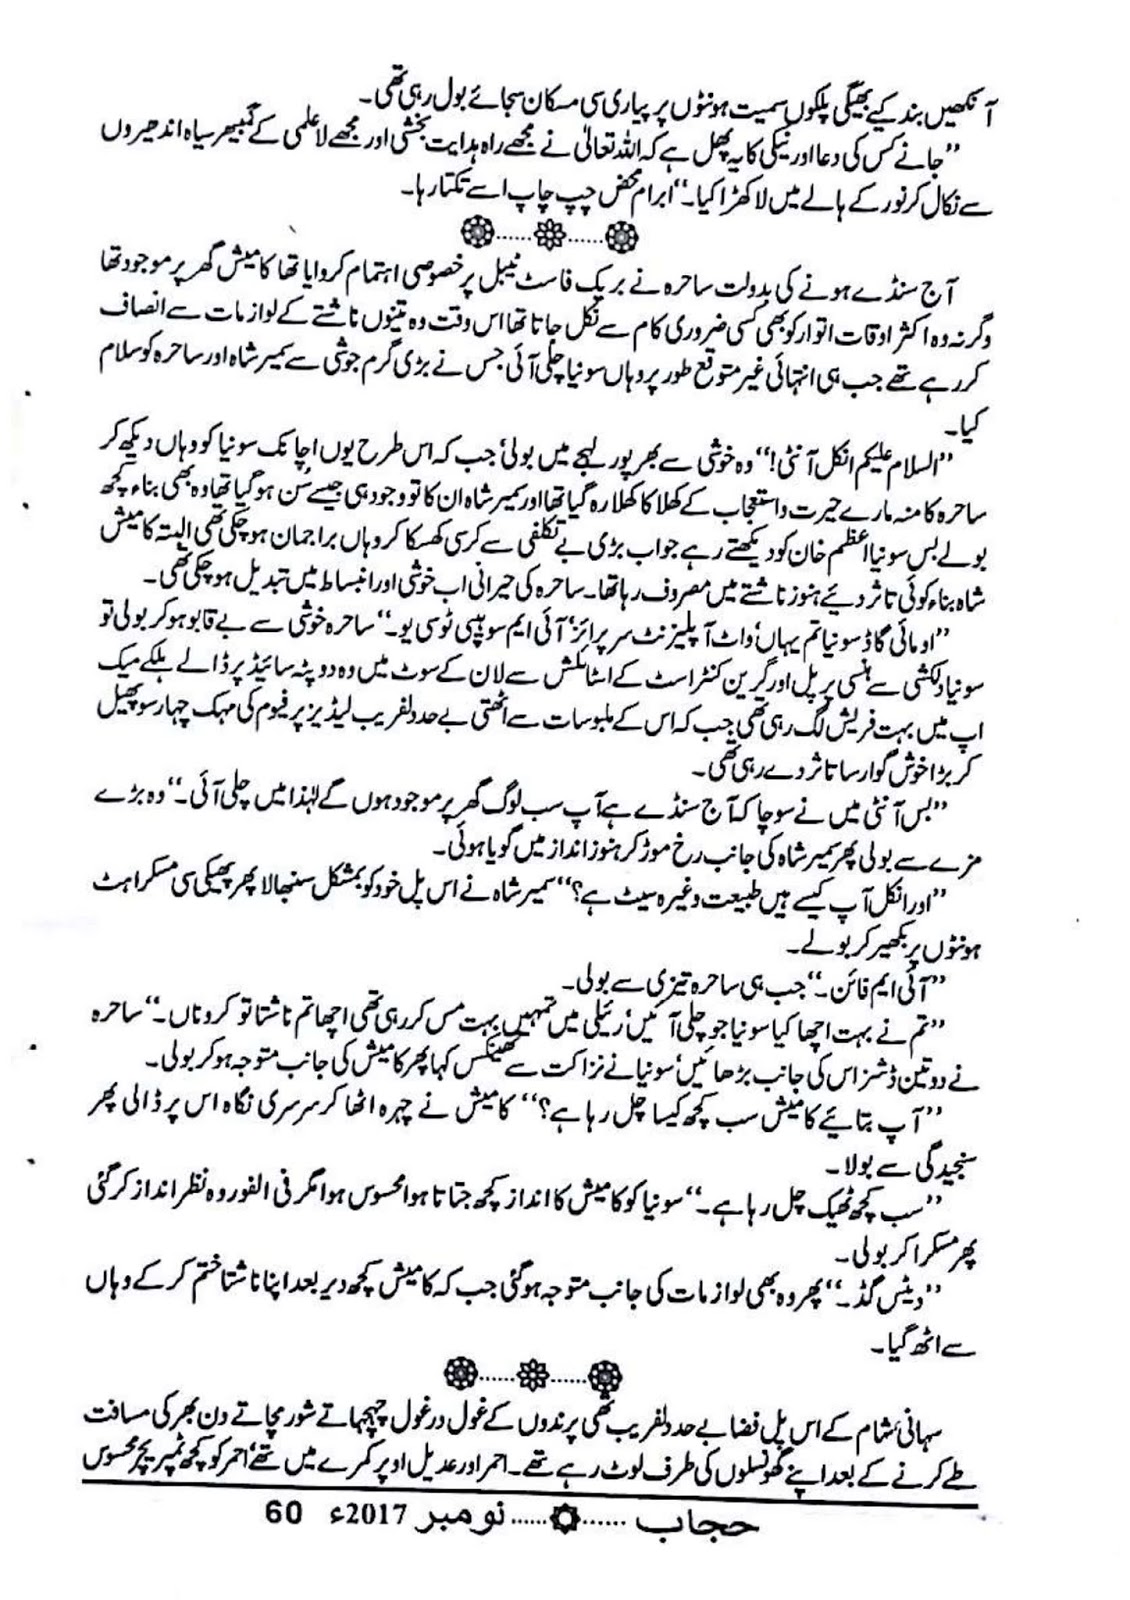 آنکھیں بند کیے بھیگی پلکوں سمیت ہونٹوں پر پیاری سی مسکان سجائے بول رہی تھی۔
”جانے کس کی دعا اور نیکی کا یہ پھل ہے کہ اللہ تعالیٰ نے مجھے راہ ہدایت بخشی اور مجھے لاعلمی کے گمبھیر سیاہ اندھیروں
سے نکال کر نور کے ہالے میں لاکھڑا کیا۔“ ابرام محض چپ چاپ اسے تکتا رہا۔
آج سنڈے ہونے کی بدولت ساحرہ نے بریک فاسٹ ٹیبل پر خصوصی اہتمام کروایا تھا کامیش گھر پر موجود تھا
وگرنہ وہ اکثر اوقات اتوار کو بھی کسی ضروری کام سے نکل جاتا تھا اس وقت وہ تینوں ناشتے کے لوازمات سے انصاف
کر رہے تھے جب ہی انتہائی غیر متوقع طور پر وہاں سونیا چلی آئی جس نے بڑی گرم جوشی سے سمیر شاہ اور ساحرہ کو سلام
کیا۔
”السلام علیکم انکل آنٹی!“ وہ خوشی سے بھرپور لہجے میں بولی‘ جب کہ اس طرح یوں اچانک سونیا کو وہاں دیکھ کر
ساحرہ کا منہ مارے حیرت و استعجاب کے کھلا کا کھلا رہ گیا تھا اور سمیر شاہ ان کا تو وجود ہی جیسے سُن ہو گیا تھا وہ بھی بناء کچھ
بولے بس سونیا اعظم خان کو دیکھتے رہے جواب بڑی بے تکلفی سے کرسی کھسکا کر وہاں براجمان ہو چکی تھی البتہ کامیش
شاہ بناء کوئی تاثر دیئے ہنوز ناشتے میں مصروف رہا تھا۔ ساحرہ کی حیرانی اب خوشی اور انبساط میں تبدیل ہو چکی تھی۔
”او مائی گاڈ سونیا تم یہاں‘ واٹ آ پلیزنٹ سرپرائز‘ آئی ایم سو ہیپی ٹو سی یو۔“ ساحرہ خوشی سے بے قابو ہو کر بولی تو
سونیا دلکشی سے ہنسی پرپل اور گرین کنٹراسٹ کے اسٹائلش سے لان کے سوٹ میں وہ دوپٹہ سائیڈ پر ڈالے ہلکے میک
اپ میں بہت فریش لگ رہی تھی جب کہ اس کے ملبوسات سے اٹھتی بے حد دلفریب لیڈیز پرفیوم کی مہک چہار سو پھیل
کر بڑا خوش گوار سا تاثر دے رہی تھی۔
”بس آنٹی میں نے سوچا کہ آج سنڈے ہے آپ سب لوگ گھر پر موجود ہوں گے لہٰذا میں چلی آئی۔“ وہ بڑے
مزے سے بولی پھر سمیر شاہ کی جانب رخ موڑ کر ہنوز انداز میں گویا ہوئی۔
”اور انکل آپ کیسے ہیں طبیعت وغیرہ سیٹ ہے؟“ سمیر شاہ نے اس پل خود کو بمشکل سنبھالا پھر پھیکی سی مسکراہٹ
ہونٹوں پر بکھیر کر بولے۔
”آئی ایم فائن۔“ جب ہی ساحرہ تیزی سے بولی۔
”تم نے بہت اچھا کیا سونیا جو چلی آئیں‘ رئیلی میں تمہیں بہت مس کر رہی تھی اچھا تم ناشتا تو کرو ناں۔“ ساحرہ
نے دو تین ڈشز اس کی جانب بڑھائیں‘ سونیا نے نزاکت سے تھینکس کہا پھر کامیش کی جانب متوجہ ہو کر بولی۔
”آپ بتائیے کامیش سب کچھ کیسا چل رہا ہے؟“ کامیش نے چہرہ اٹھا کر سرسری نگاہ اس پر ڈالی پھر
سنجیدگی سے بولا۔
”سب کچھ ٹھیک چل رہا ہے۔“ سونیا کو کامیش کا انداز کچھ جتاتا ہوا محسوس ہوا مگر فی الفور وہ نظر انداز کر گئی
پھر مسکرا کر بولی۔
”دیٹس گڈ۔“ پھر وہ بھی لوازمات کی جانب متوجہ ہو گئی جب کہ کامیش کچھ دیر بعد اپنا ناشتا ختم کر کے وہاں
سے اٹھ گیا۔
سہانی شام کے اس پل فضا بے حد دلفریب تھی پرندوں کے غول در غول چہچہاتے شور مچاتے دن بھر کی مسافت
طے کرنے کے بعد اپنے گھونسلوں کی طرف لوٹ رہے تھے۔ احمر اور عدیل اوپر کمرے میں تھے‘ احمر کو کچھ ٹمپریچر محسوس
حجاب ...... ...... نومبر 2017ء 60